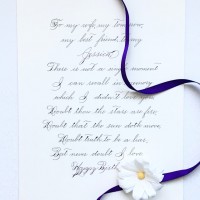 To my wife, my tomorrow,
my best friend, to my
Jessica.
There is not a single moment
I can recall in memory
which I didn't love you.
Doubt thou the stars are fire,
Doubt that the sun doth move,
Doubt truth to be a liar,
But never doubt I love.
Happy Birth